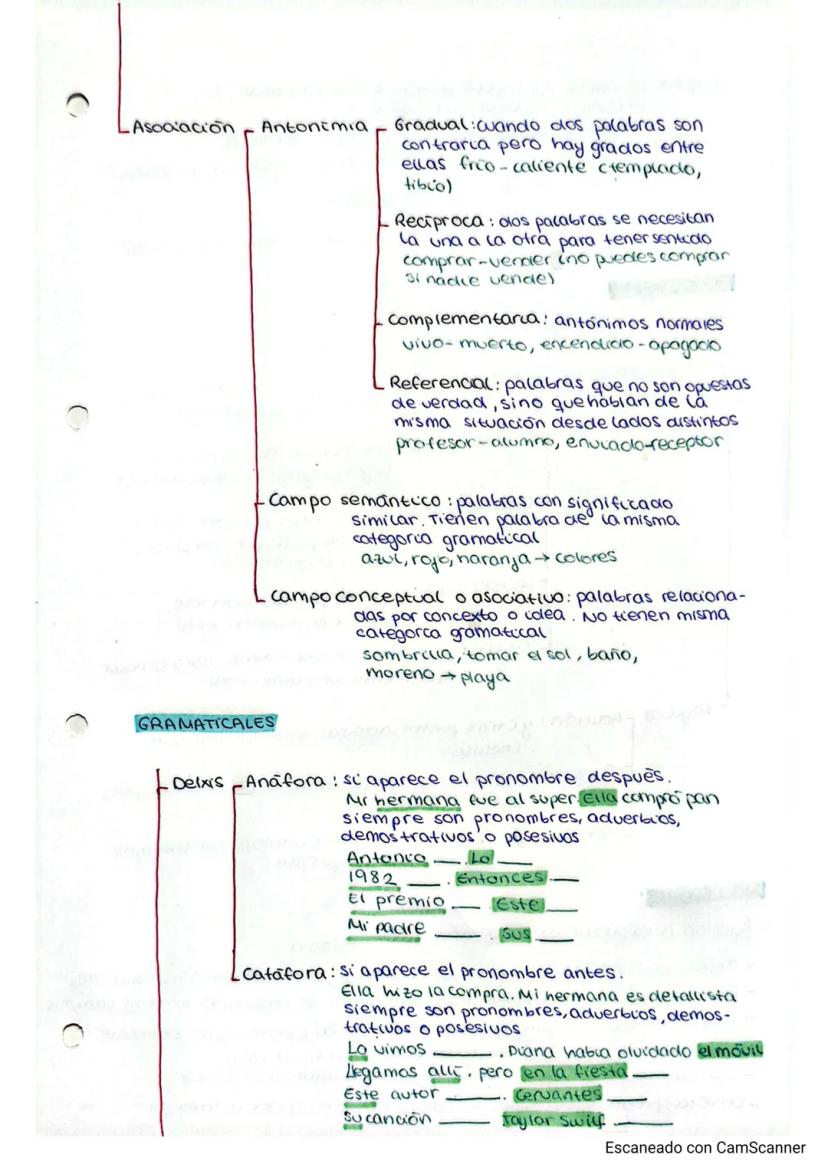 Asociación Antonimia Gradual: cuando dos palabras son
contraria pero hay grados entre
ellas frío - caliente (templado,
tibio)
Recíproca: dos palabras se necesitan
la una a la otra para tener sentido
comprar - vender (no puedes comprar
si nadie vende)
Complementaria: antónimos normales
vivo - muerto, encendido - apagado
Referencial: palabras que no son opuestas
de verdad, sino que hablan de la
misma situación desde lados distintos
profesor - alumno, enviado - receptor
Campo semántico: palabras con significado
similar. Tienen palabra de la misma
categoría gramatical
azul, rojo, naranja → colores
Campo conceptual o asociativo: palabras relaciona-
das por concexto o idea. No tienen misma
categoría gramatical
sombrilla, tomar el sol, baño,
moreno → playa
GRAMATICALES
Deíxis Anáfora: si aparece el pronombre después.
Mi hermana fue al super. Ella compró pan
siempre son pronombres, adverbios,
demostrativos o posesivos
Antonio ___. Lo ___
1982 ___. Entonces ___
El premio ___. Este ___
Mi padre ___. Sus ___
Catáfora: si aparece el pronombre antes.
Ella hizo la compra. Mi hermana es detallista
siempre son pronombres, adverbios, demos-
trativos o posesivos
Lo vimos ___. Diana había olvidado el móvil
Llegamos allí, pero en la fiesta ___
Este autor ___. Cervantes ___
Su canción ___ Taylor Swift ___
Escaneado con CamScanner